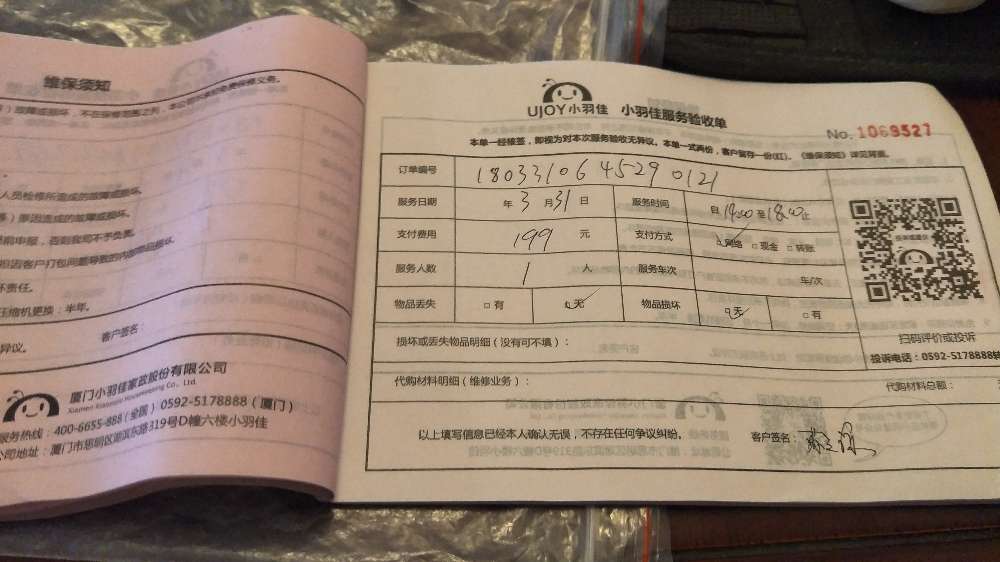 维保须知
故障或损坏，不在保修范围之列，
人员检修所造成的故障或损坏。
原因造成的故障或损坏。
前申报，否则我司不予负责。
担因客户打包问题导致的内部物品损坏。
坏责任。
压缩机更换：半年。
客户签名：
异议。
厦门小羽佳家政股份有限公司
Xiamen Xiaoyujia Housekeeping Co., Ltd.
服务热线：400-6655-888（全国）0592-5178888（厦门）
公司地址：厦门市思明区湖滨东路319号D幢六楼小羽佳
UJOY小羽佳 小羽佳服务验收单
No. 1069527
本单一经核签，即视为对本次服务验收无异议。本单一式两份，客户留存一份(红)。《维保须知》详见背面。
订单编号 1803310645290121
服务日期 年 3 月 31 日 服务时间 自 14:00 至 18:00 止
支付费用 199 元 支付方式 □网络 □现金 □转账
服务人数 1 人 服务车次 车/次
物品丢失 □有 □无 物品损坏 □无 □有
扫码评价或投诉
投诉电话：0592-5178888转
损坏或丢失物品明细（没有可不填）：
代购材料明细（维修业务）： 代购材料总额：
以上填写信息已经本人确认无误，不存在任何争议纠纷。 客户签名：